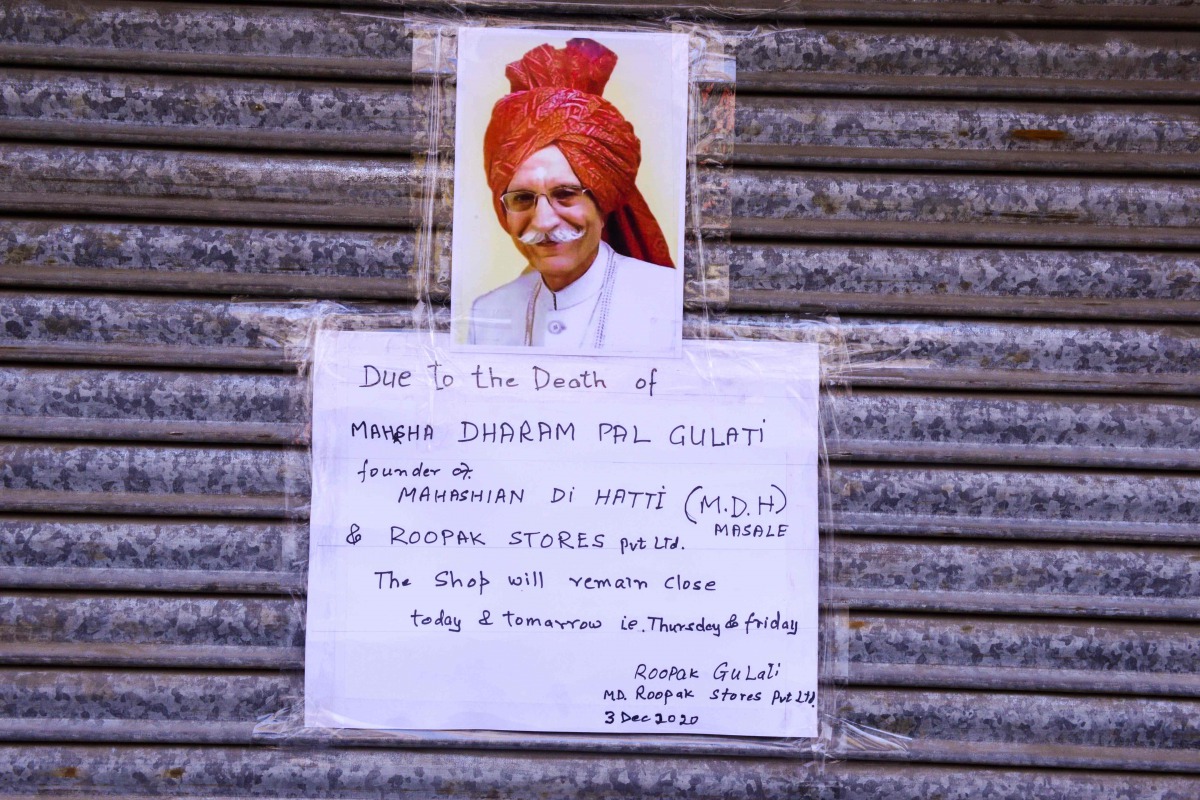 Due To the Death of
MAHSHA DHARAM PAL GULATI
founder of
MAHASHIAN Di HATTI (M.D.H)
MASALE
& ROOPAK STORES Pvt Ltd.
The Shop will remain close
today & tomarrow ie. Thursday & friday
ROOPAK GULATi
MD. Roopak Stores Pvt Ltd.
3 Dec 2020